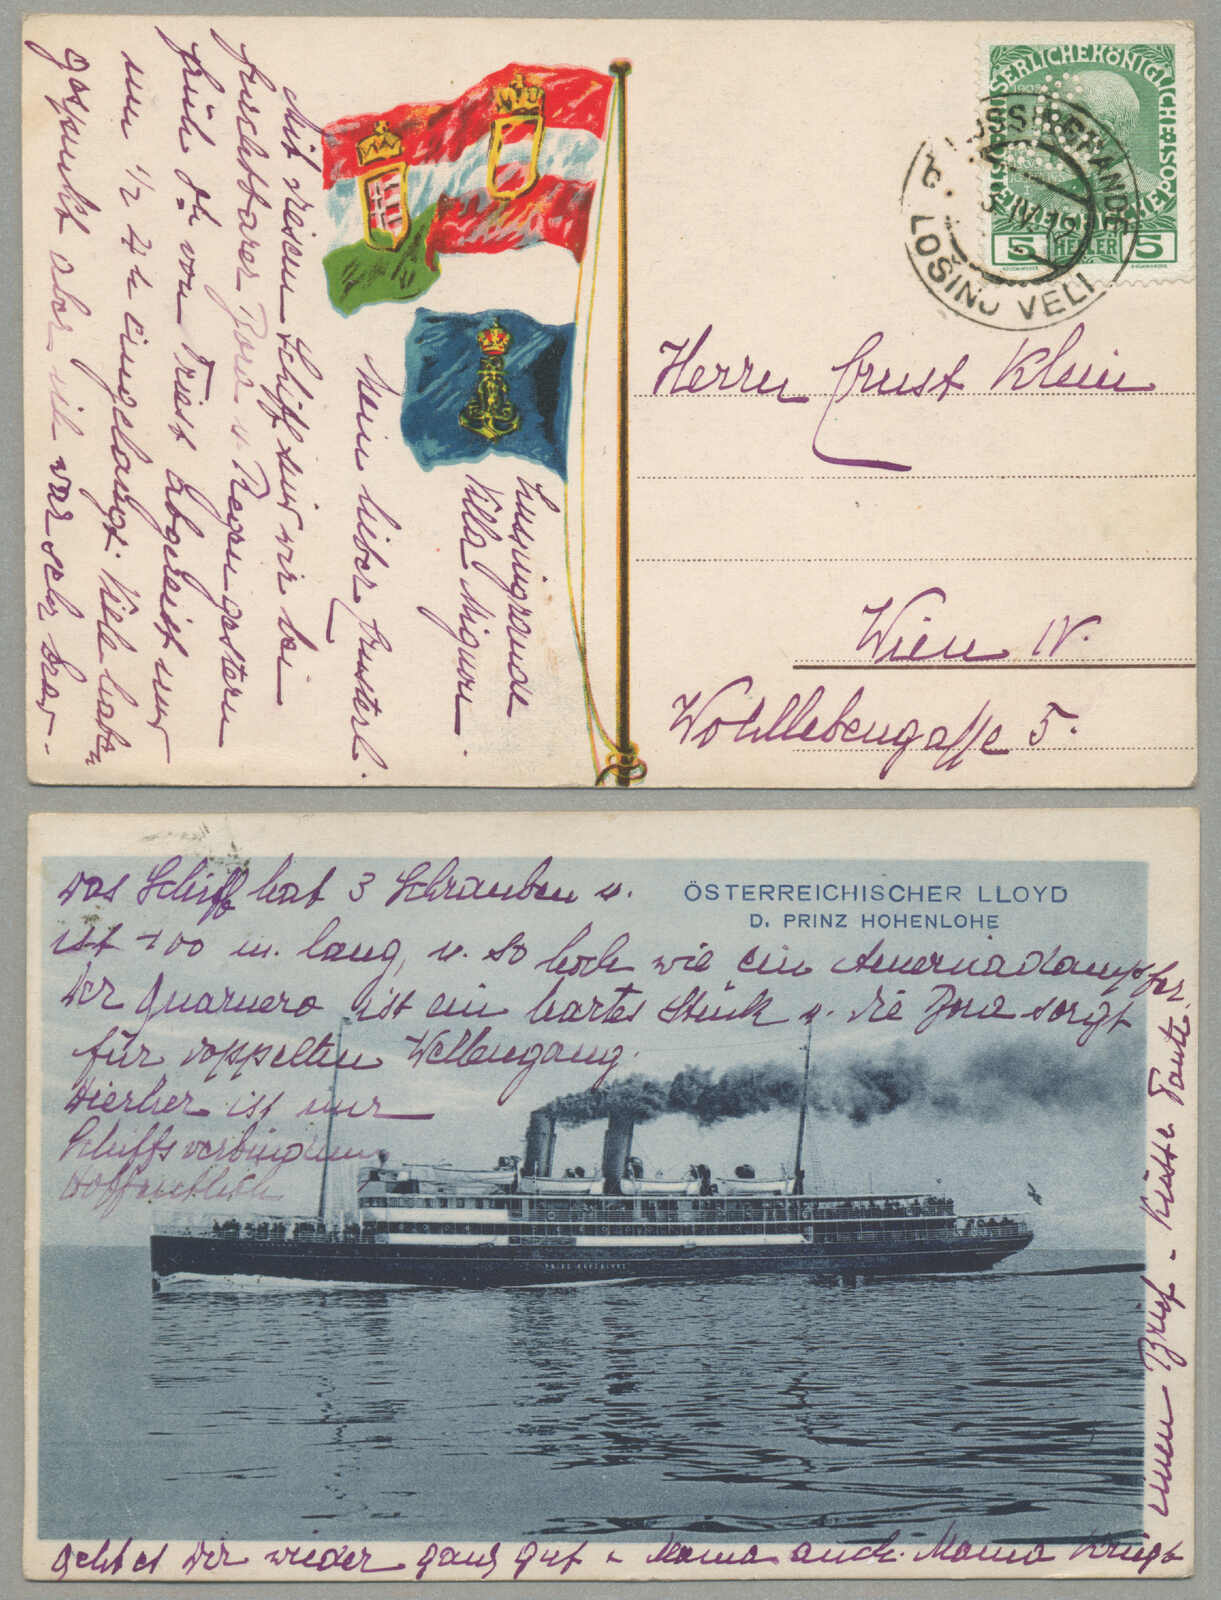 KAISERLICHEKÖNIGLICHE ÖSTERREICHISCHE POST
1908
5 HELLER 5
LUSSINGRANDE
6. IV. 12
LOŠINJ VELI
Herrn Ernst Klein
Wien IV.
Wohllebengasse 5.
Lussingrande
Villa Mignon.
Mein lieber Ernsterl.
Mit diesem Schiff sind wir bei
furchtbarer Bora u. Regen gestern
früh 8h von Triest abgereist und
um 1/2 4 h eingelangt. Viele haben
gespuckt aber ich war sehr brav.
ÖSTERREICHISCHER LLOYD
D. PRINZ HOHENLOHE
das Schiff hat 3 Schrauben u.
ist 100 m. lang, u. so hoch wie ein Amerikadampfer.
Der Quarnero ist ein hartes Stück u. die Bora sorgt
für doppelten Wellengang.
Hierher ist nur
Schiffsverbindung
Hoffentlich
PRINZ HOHENLOHE
geht es Dir wieder ganz gut u. Mama auch. Mama kriegt
einen Brief. Küsse Tante.